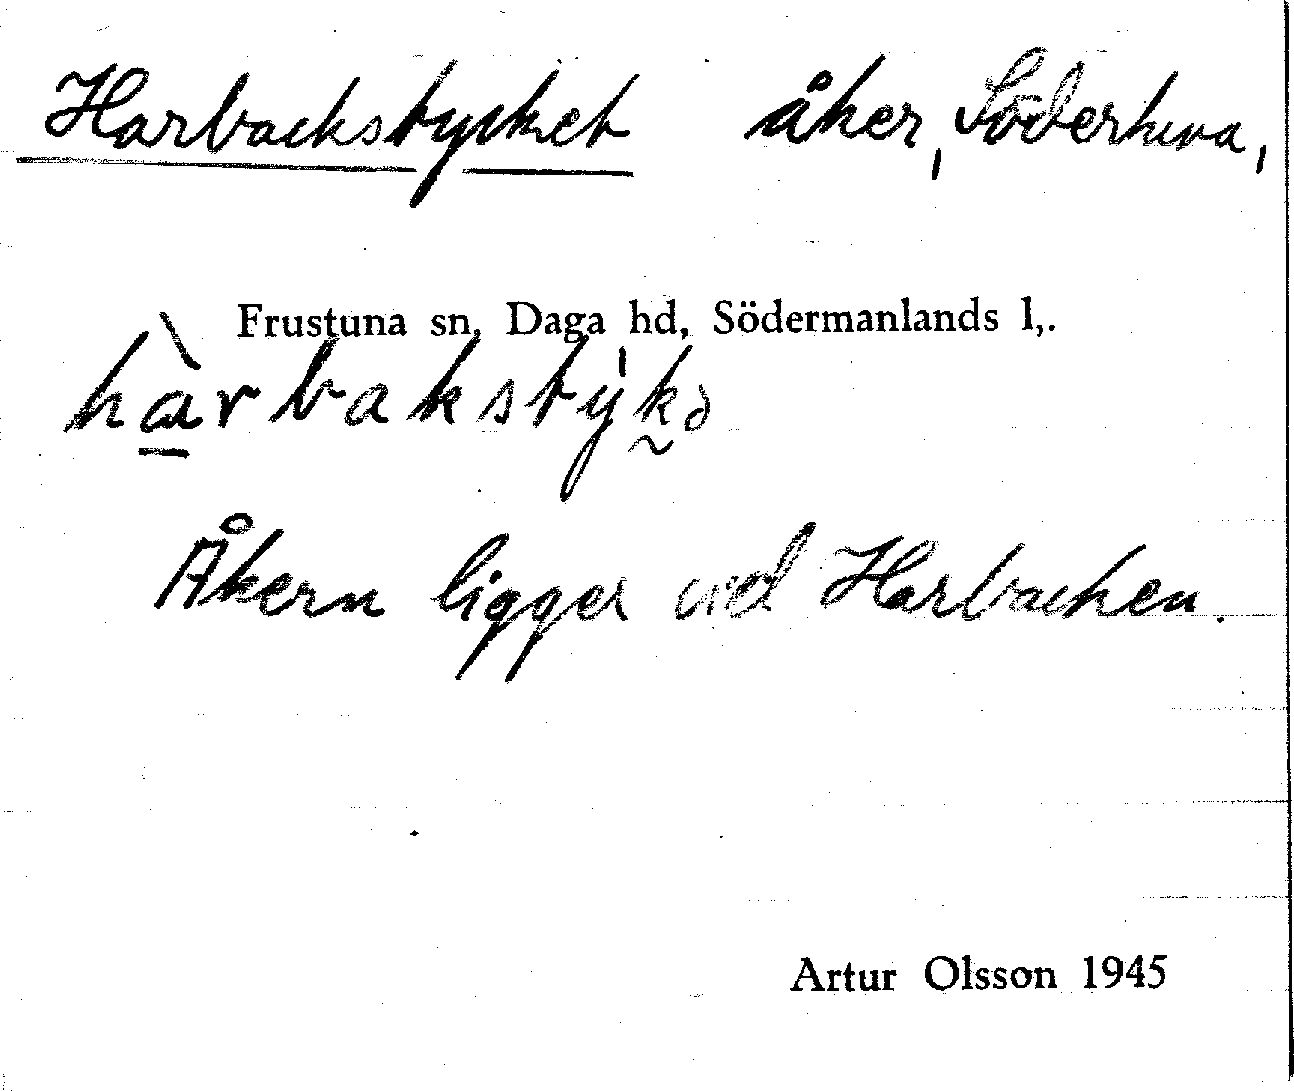 Harbackstycket åker, Södertuna,
Frustuna sn, Daga hd, Södermanlands l,.
hàrbakstýkə
Åkern ligger vid Harbacken.
Artur Olsson 1945